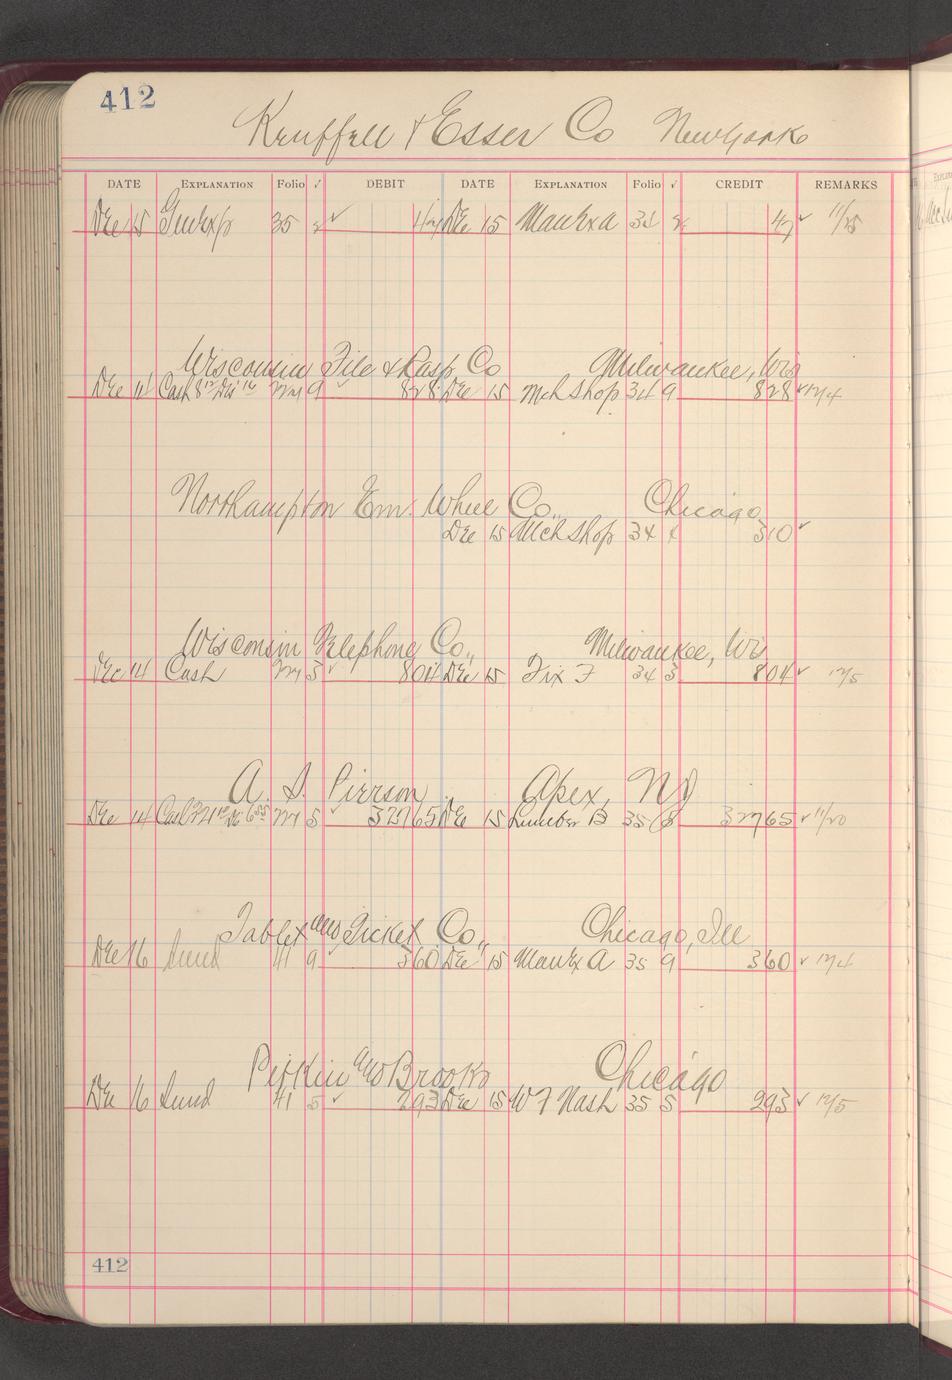 412
Keuffell & Esser Co New York
DATE EXPLANATION Folio ✓ DEBIT DATE EXPLANATION Folio ✓ CREDIT REMARKS
Dec 15 GenExp 35 2 ✓ 47 Dec 15 ManExa 34 2 47 ✓ 11/25
Wisconsin File & Rasp Co Milwaukee, Wis
Dec 14 Cash 9 ✓ 828 Dec 15 Mch Shop 34 9 828 ✓ 12/4
Northampton Em. Wheel Co., Chicago
Dec 15 Mch Shop 34 4 310 ✓
Wisconsin Telephone Co., Milwaukee, Wis
Dec 14 Cash 3 ✓ 804 Dec 15 Fix F 34 3 804 ✓ 12/5
A. S. Pierson Apex, NJ
Dec 14 Cash 5 ✓ 32765 Dec 15 Lumber B 35 8 32765 ✓ 11/20
Tablet and Ticket Co., Chicago, Ill
Dec 16 Sund 41 9 360 Dec 15 ManEx A 35 9 360 ✓ 12/4
Pitkin and Brooks Chicago
Dec 16 Sund 41 5 ✓ 293 Dec 15 W F Nash 35 5 293 ✓ 12/5
412